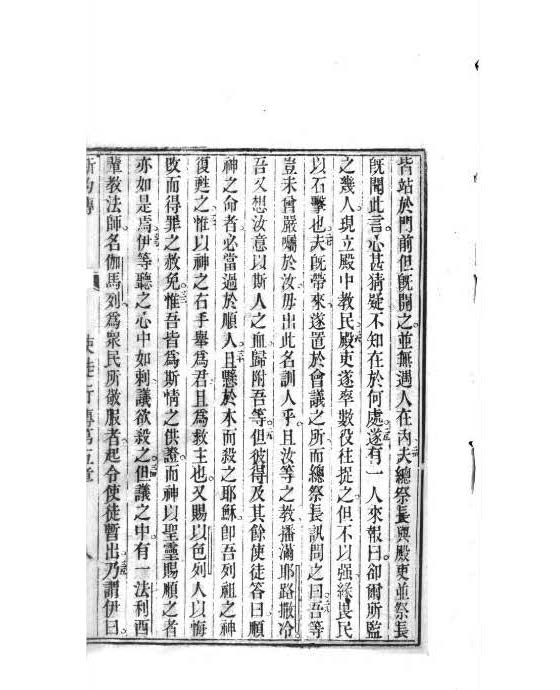 皆站於門前但既開之並無遇人在內夫總祭長與殿吏並祭長
既聞此言心甚猜疑不知在於何處遂有一人來報曰卻爾所監
之幾人現立殿中教民殿吏遂率數役往捉之但不以强緣畏民
以石擊也夫既帶來遂置於會議之所而總祭長訊問之曰吾等
豈未曾嚴囑於汝毋出此名訓人乎且汝等之教播滿耶路撒冷
吾又想汝意以斯人之血歸附吾等但彼得及其餘使徒答曰順
神之命者必當過於順人且懸於木而殺之耶穌卽吾列祖之神
復甦之惟以神之右手舉為君且為救主也又賜以色列人以悔
改而得罪之赦免惟吾皆為斯情之供證而神以聖靈賜順之者
亦如是焉伊等聽之心中如刺議欲殺之但議之中有一法利西
輩教法師名伽馬列為眾民所敬服者起令使徒暫出乃謂伊曰
使徒行傳第五章 八